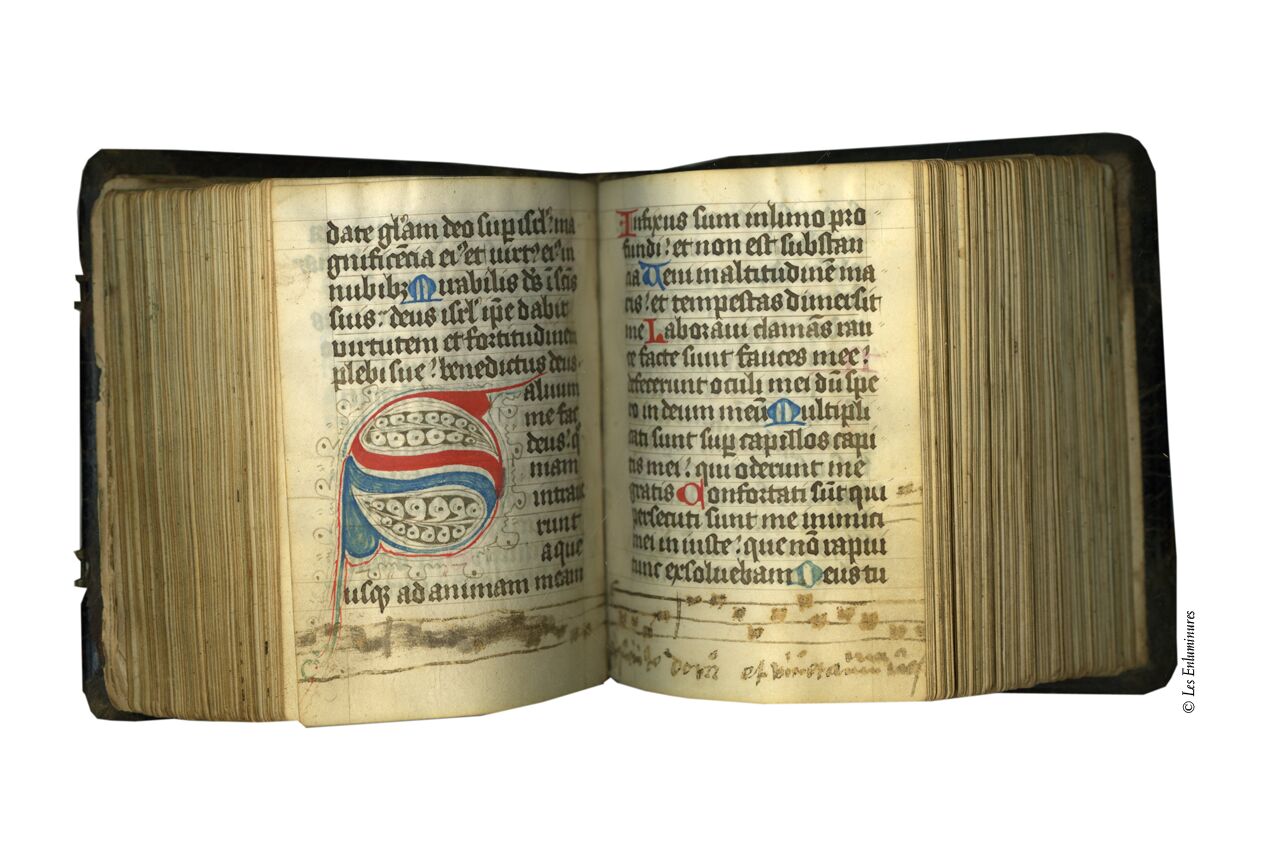 date gl'am deo sup isrl': ma
gnificẽcia ei' et uirt' ei' in
nubibȝ Mirabilis ds̃ ĩ scĩs
suis: deus isrl' ip̃e dabit
uirtutem et fortitudinem
plebi sue: benedictus deus.
Saluum
me fac
deus: q'
niam
intraue
runt
aque
usqȝ ad animam meam
Infixus sum in limo pro
fundi: et non est substan
cia Veni in altitudinẽ ma
ris: et tempestas dimersit
me Laboraui clamãs rau
ce facte sunt fauces mee:
defecerunt oculi mei dũ spe
ro in deum meũ Multipli
cati sunt sup capillos capi
tis mei: qui oderunt me
gratis Confortati sũt qui
persecuti sunt me inimici
mei in iuste: que nõ rapui
tunc exsoluebam Deus tu
© Les Enluminures